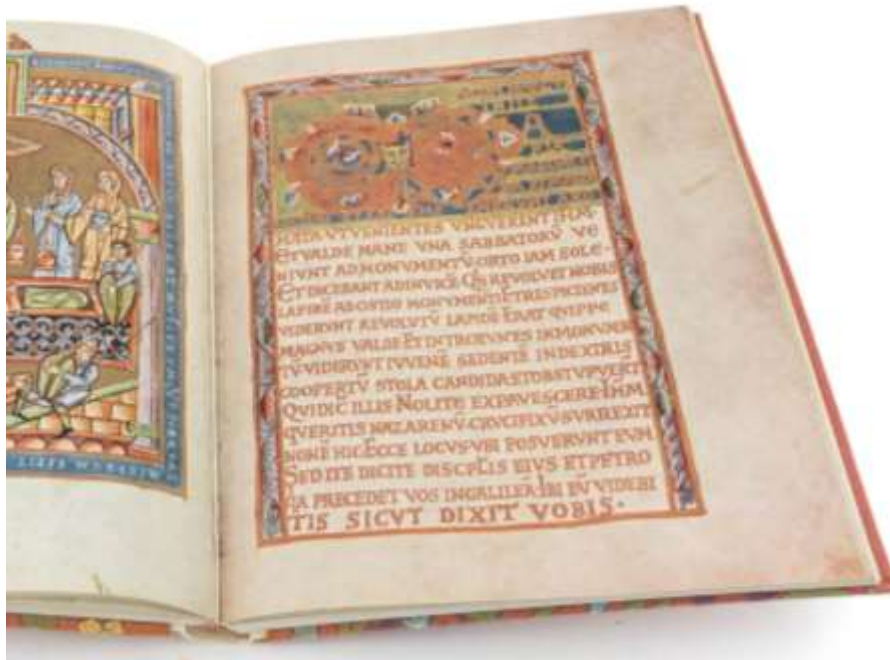 ET VALDE MANE VNA SABBATORV̄ VE
NIVNT AD MONVMENTV̄ ORTO IAM SOLE·
ET DICEBANT ADINVICĒ QIS REVOLVET NOBIS
LAPIDĒ AB OSTIO MONVMENTI ET RESPICIENTES
VIDERVNT REVOLVTV̄ LAPIDĒ ERAT QVIPPE
MAGNVS VALDE ET INTROEVNTES IN MONVMEN
TV̄ VIDERVNT IVVENĒ SEDENTĒ IN DEXTRIS
COOPERTV̄ STOLA CANDIDA ET OBSTVPVERT
QVI DIC ILLIS NOLITE EXPAVESCERE IHM
QVERITIS NAZARENV̄ CRVCIFIXV̄ SVRREXIT
NON Ē HIC ECCE LOCVS VBI POSVERVNT EVM
SED ITE DICITE DISCPLIS EIVS ET PETRO
PRECEDET VOS IN GALILEĀ IBI EV̄ VIDEBI
TIS SICVT DIXIT VOBIS·